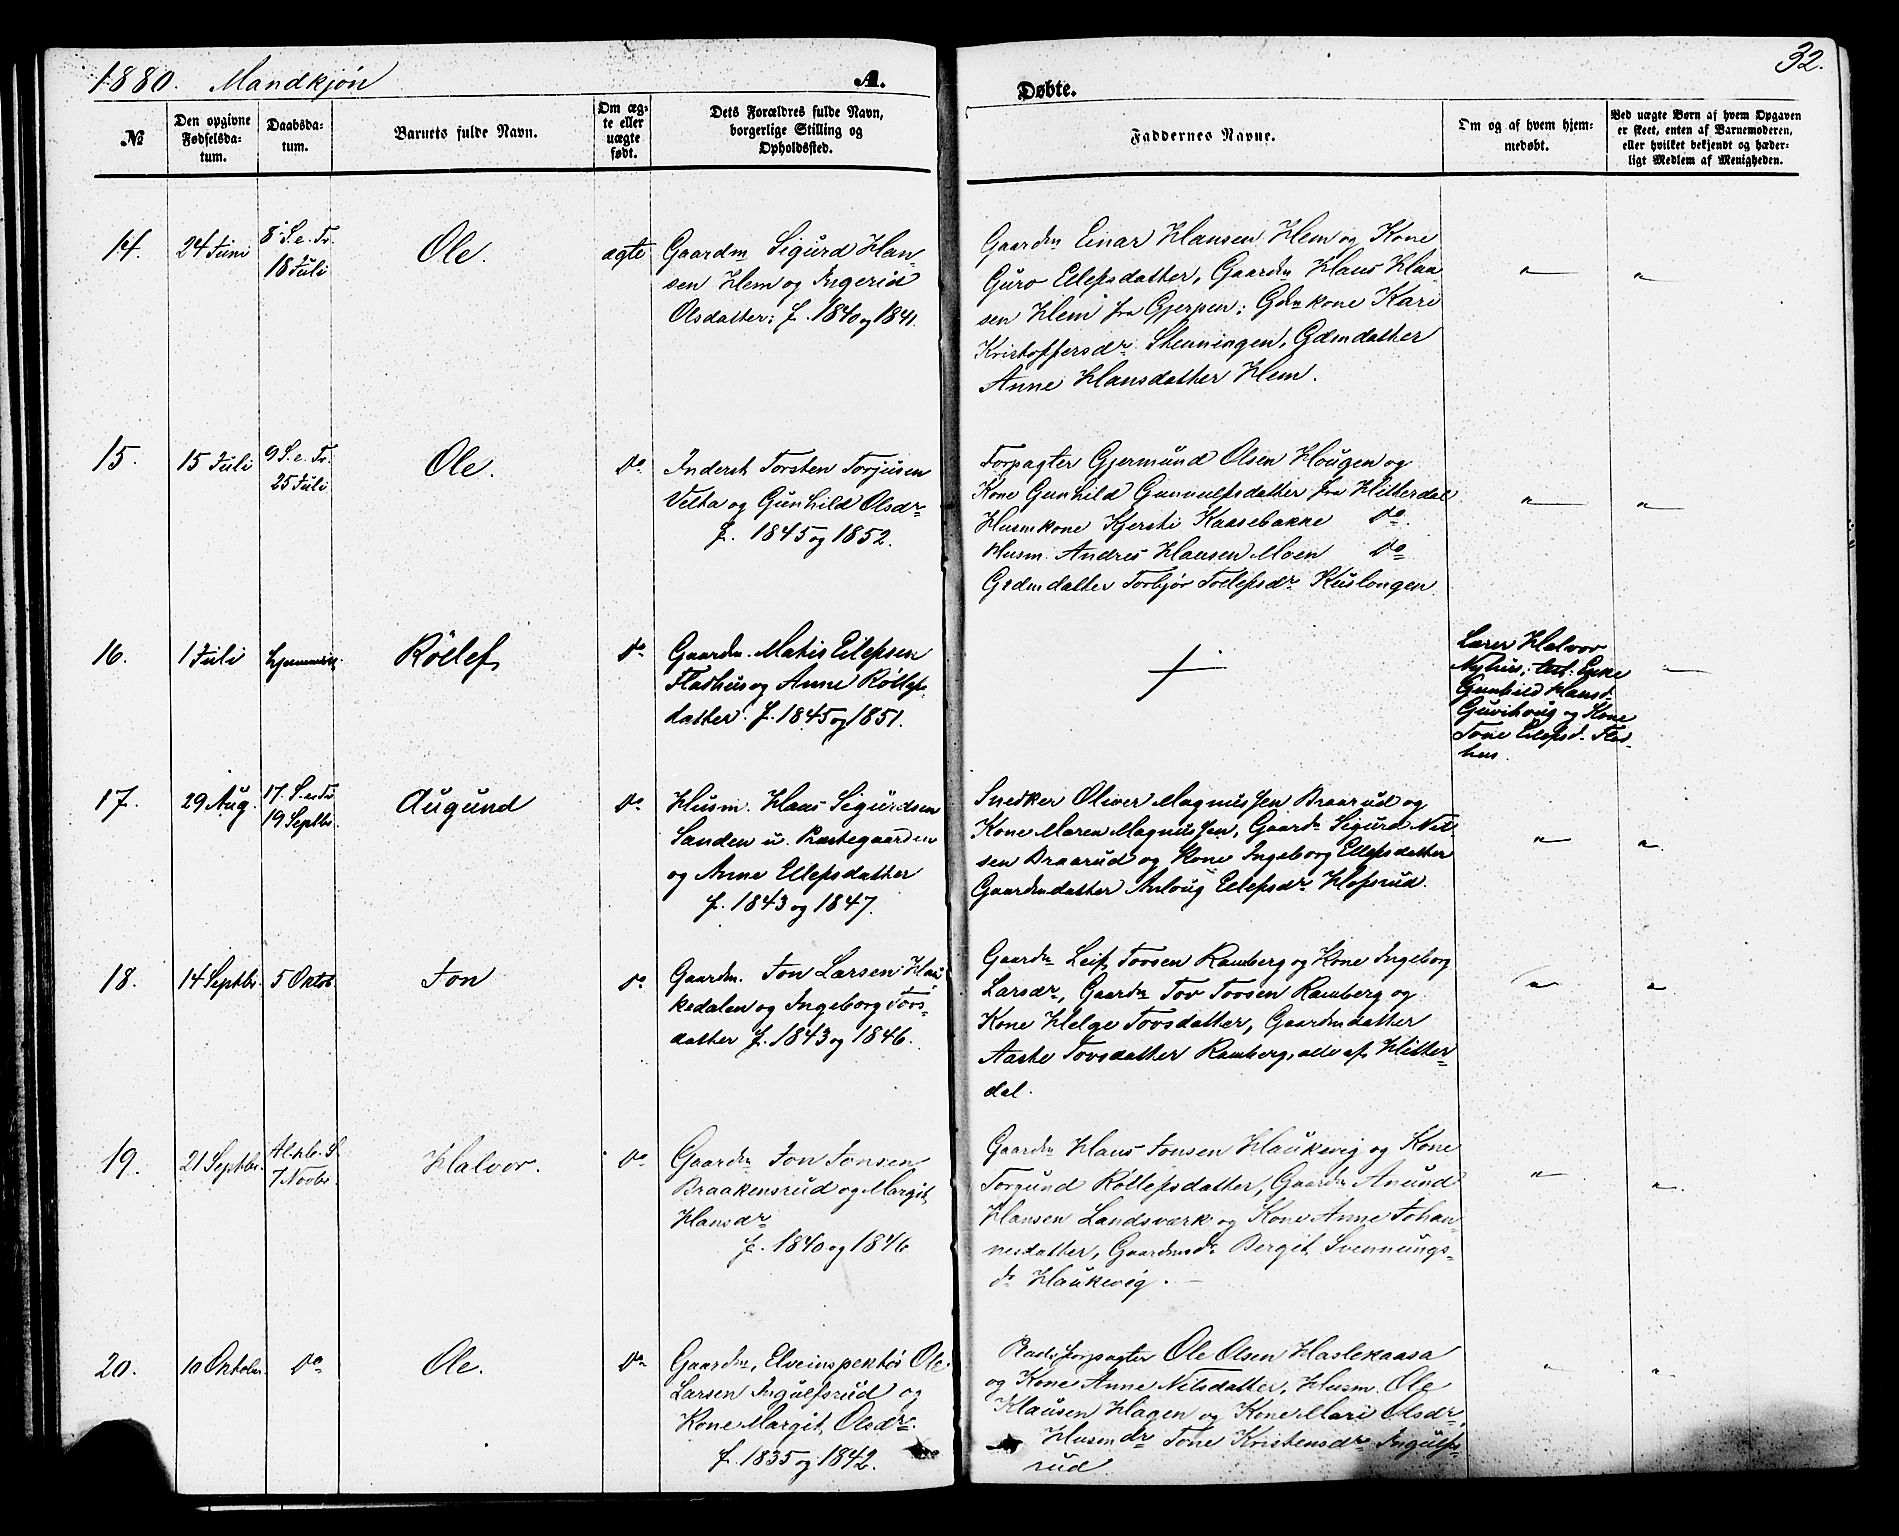 1880. Mandkjøn
A.
Døbte.
32.
№
Den opgivne Fødselsda-tum.
Daabsda-tum.
Barnets fulde Navn.
Om æg-te eller uægte født.
Dets Forældres fulde Navn, borgerlige Stilling og Opholdssted.
Faddernes Navne.
Om og af hvem hjem-medøbt.
Ved uægte Børn af hvem Opgaven er skeet, enten af Barnemoderen, eller hvilket bekjendt og hæder-ligt Medlem af Menigheden.
14.
24 Juni
8 S. e. Tr.
18 Juli
Ole.
ægte
Gaardm Sigurd Han-
sen Hem og Ingerid
Olsdatter; f. 1840 og 1841.
Gaardm Einar Hansen Hem og Kone
Guro Ellefsdatter, Gaardm Hans Han
sen Hem fra Gjerpen; Gdmkone Kari
Kristoffersdr. Stenningen, Gdmdatter
Anne Hansdatter Hem.
" "
15.
15 Juli
9 S. e. Tr.
25 Juli
Ole.
do
Inderst Torsten Torjusen
Velta og Gunhild Olsdr
f. 1845 og 1852.
Forpagter Gjermund Olsen Hougen og
Kone Gunhild Gunnulfsdatter fra Hitterdal
Husmkone Kjersti Kaasebakke do.
Husm. Andres Hansen Moen do
Grdmdatter Torbjør Toelefsdr Kuslongen
" "
16.
1 Juli
hjemme
Röllef
do
Gaardm. Matis Eilefsen
Fladhus og Anne Röllefs
datter. f. 1845 og 1851.
Lærer Halvor
Nyhus; test: Enke
Gunhild Hansd.
og Kone
Tone Eilefsd. Flad-
hus.
17.
29 Aug.
17. S. e. Tr
19 Septbr.
Augund
do
Husm. Hans Sigurdsen
Sanden u. Præstegaarden
og Anne Ellefsdatter
f. 1843 og 1847.
Snedker Oliver Magnussen Braarud og
Kone Maren Magnussen, Gaardm Sigurd Nil
sen Braarud og Kone Ingeborg Ellefsdatter
Gaardmdatter Anloug Eilefsdr Hofsrud.
" "
18.
14 Septbr.
5 Oktob
Jon
do
Gaardm. Jon Larsen Hau
kedalen og Ingeborg Tovs-
datter f. 1843 og 1846.
Gaardm Leif Tovsen Ramberg og Kone Ingeborg
Larsdr, Gaardm Tov Tovsen Ramberg og
Kone Helge Tovsdatter, Gaardmdatter
Aaste Tovsdatter Ramberg, alle af Hitter-
dal.
" "
19.
21 Septbr.
Alleh. S
7 Novbr.
Halvor.
do
Gaardm Jon Jonsen
Braakensrud og Margit
Hansdr
f. 1840 og 1846
Gaardm Hans Jonsen Haukevig og Kone
Torgund Röllefsdatter, Gaardm Anund
Hansen Landsværk og Kone Anne Johan-
nesdatter, Gaardmsdr Bergit Svennungs-
dr Haukevig.
" "
20.
10 Oktober
do
Ole.
do
Gaardm, Elveinspektør Ole
Larsen Ingulfsrud og
Kone Margit Olsdr.
f. 1835 og 1842.
forpagter Ole Olsen Haslekaasa
og Kone Anne Nilsdatter, Husm. Ole
Klausen Hagen og Kone Mari Olsdr.
Husmdr Tone Kristensdr Ingulfs-
rud.
" "